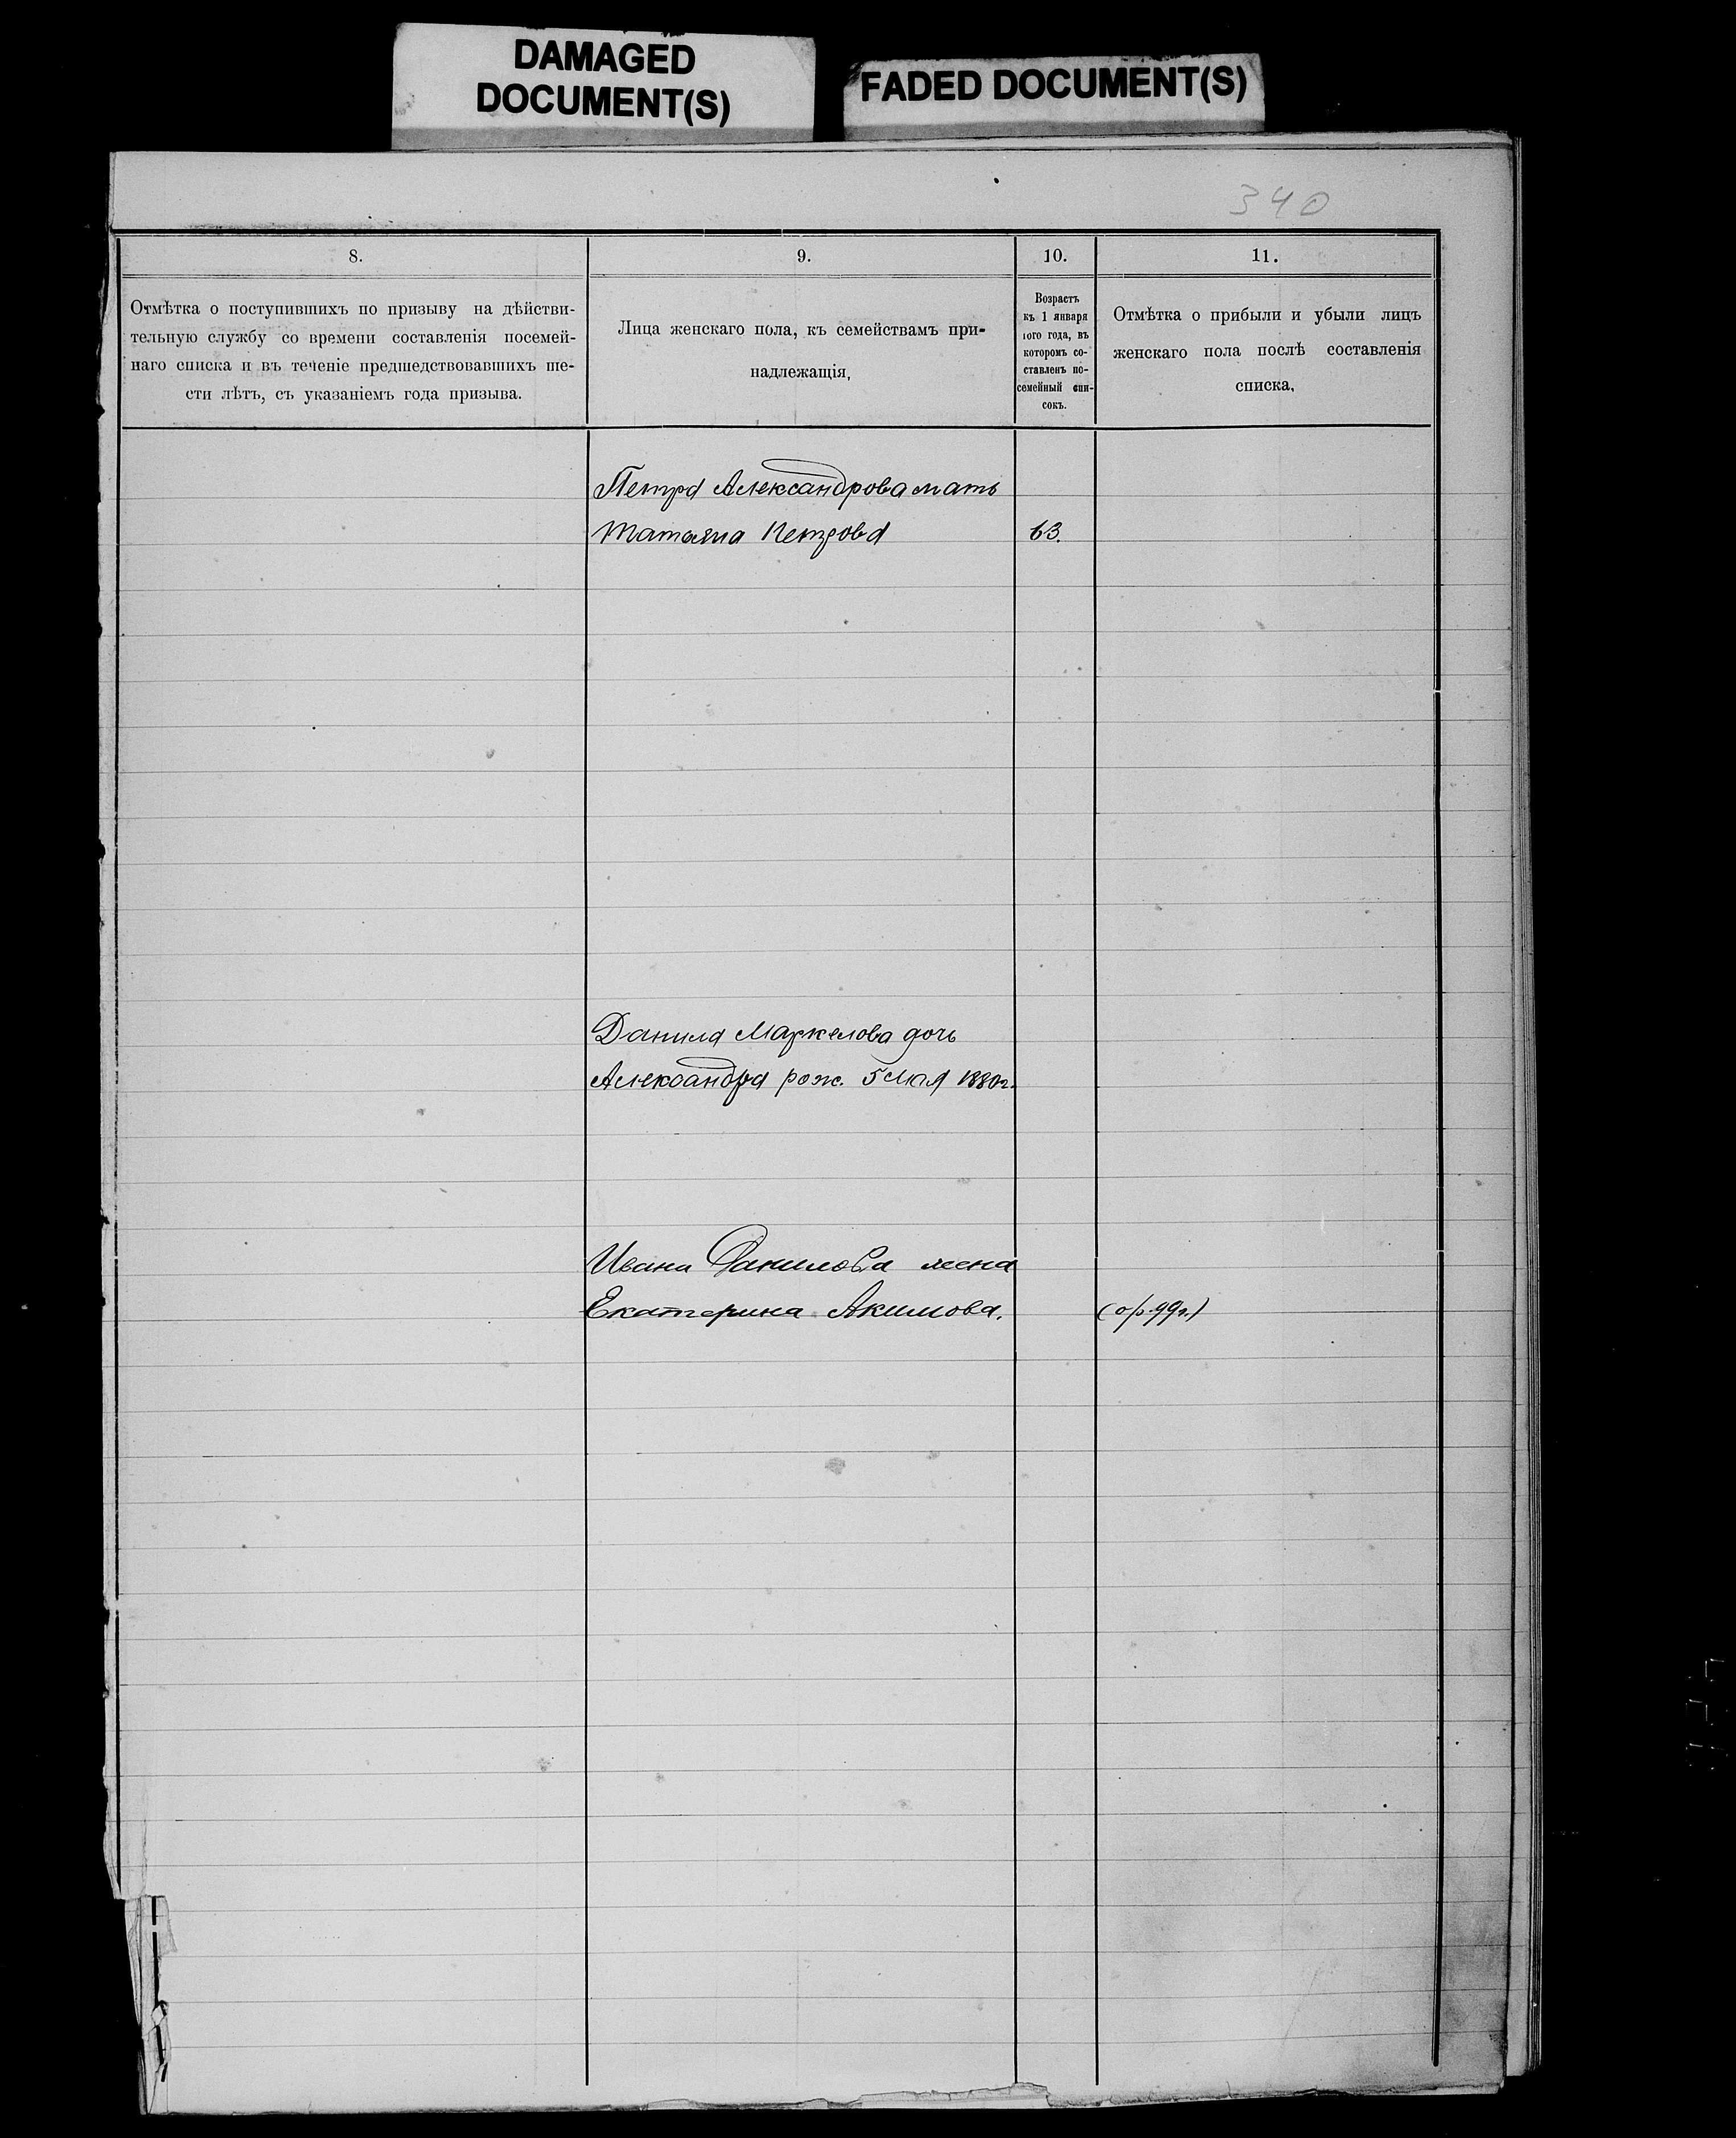 DAMAGED
DOCUMENT(S)
FADED DOCUMENT(S)
340
8.
9.
10.
11.
Отмѣтка о поступившихъ по призыву на дѣйстви-
тельную службу со времени составленія посемей-
наго списка и въ теченіе предшедствовавшихъ ше-
сти лѣтъ, съ указаніемъ года призыва.
Лица женскаго пола, къ семействамъ при-
надлежащія,
Возрастъ
къ 1 января
того года, въ
которомъ со-
ставленъ по-
семейный спи-
сокъ.
Отмѣтка о прибыли и убыли лицъ
женскаго пола послѣ составленія
списка,
Петра Александрова мать
Татьяна Петрова
63.
Данила Маркелова дочь
Александра рож. 5 Мая 1880 г.
Ивана Данилова жена
Екатерина Акимова.
99 г.)